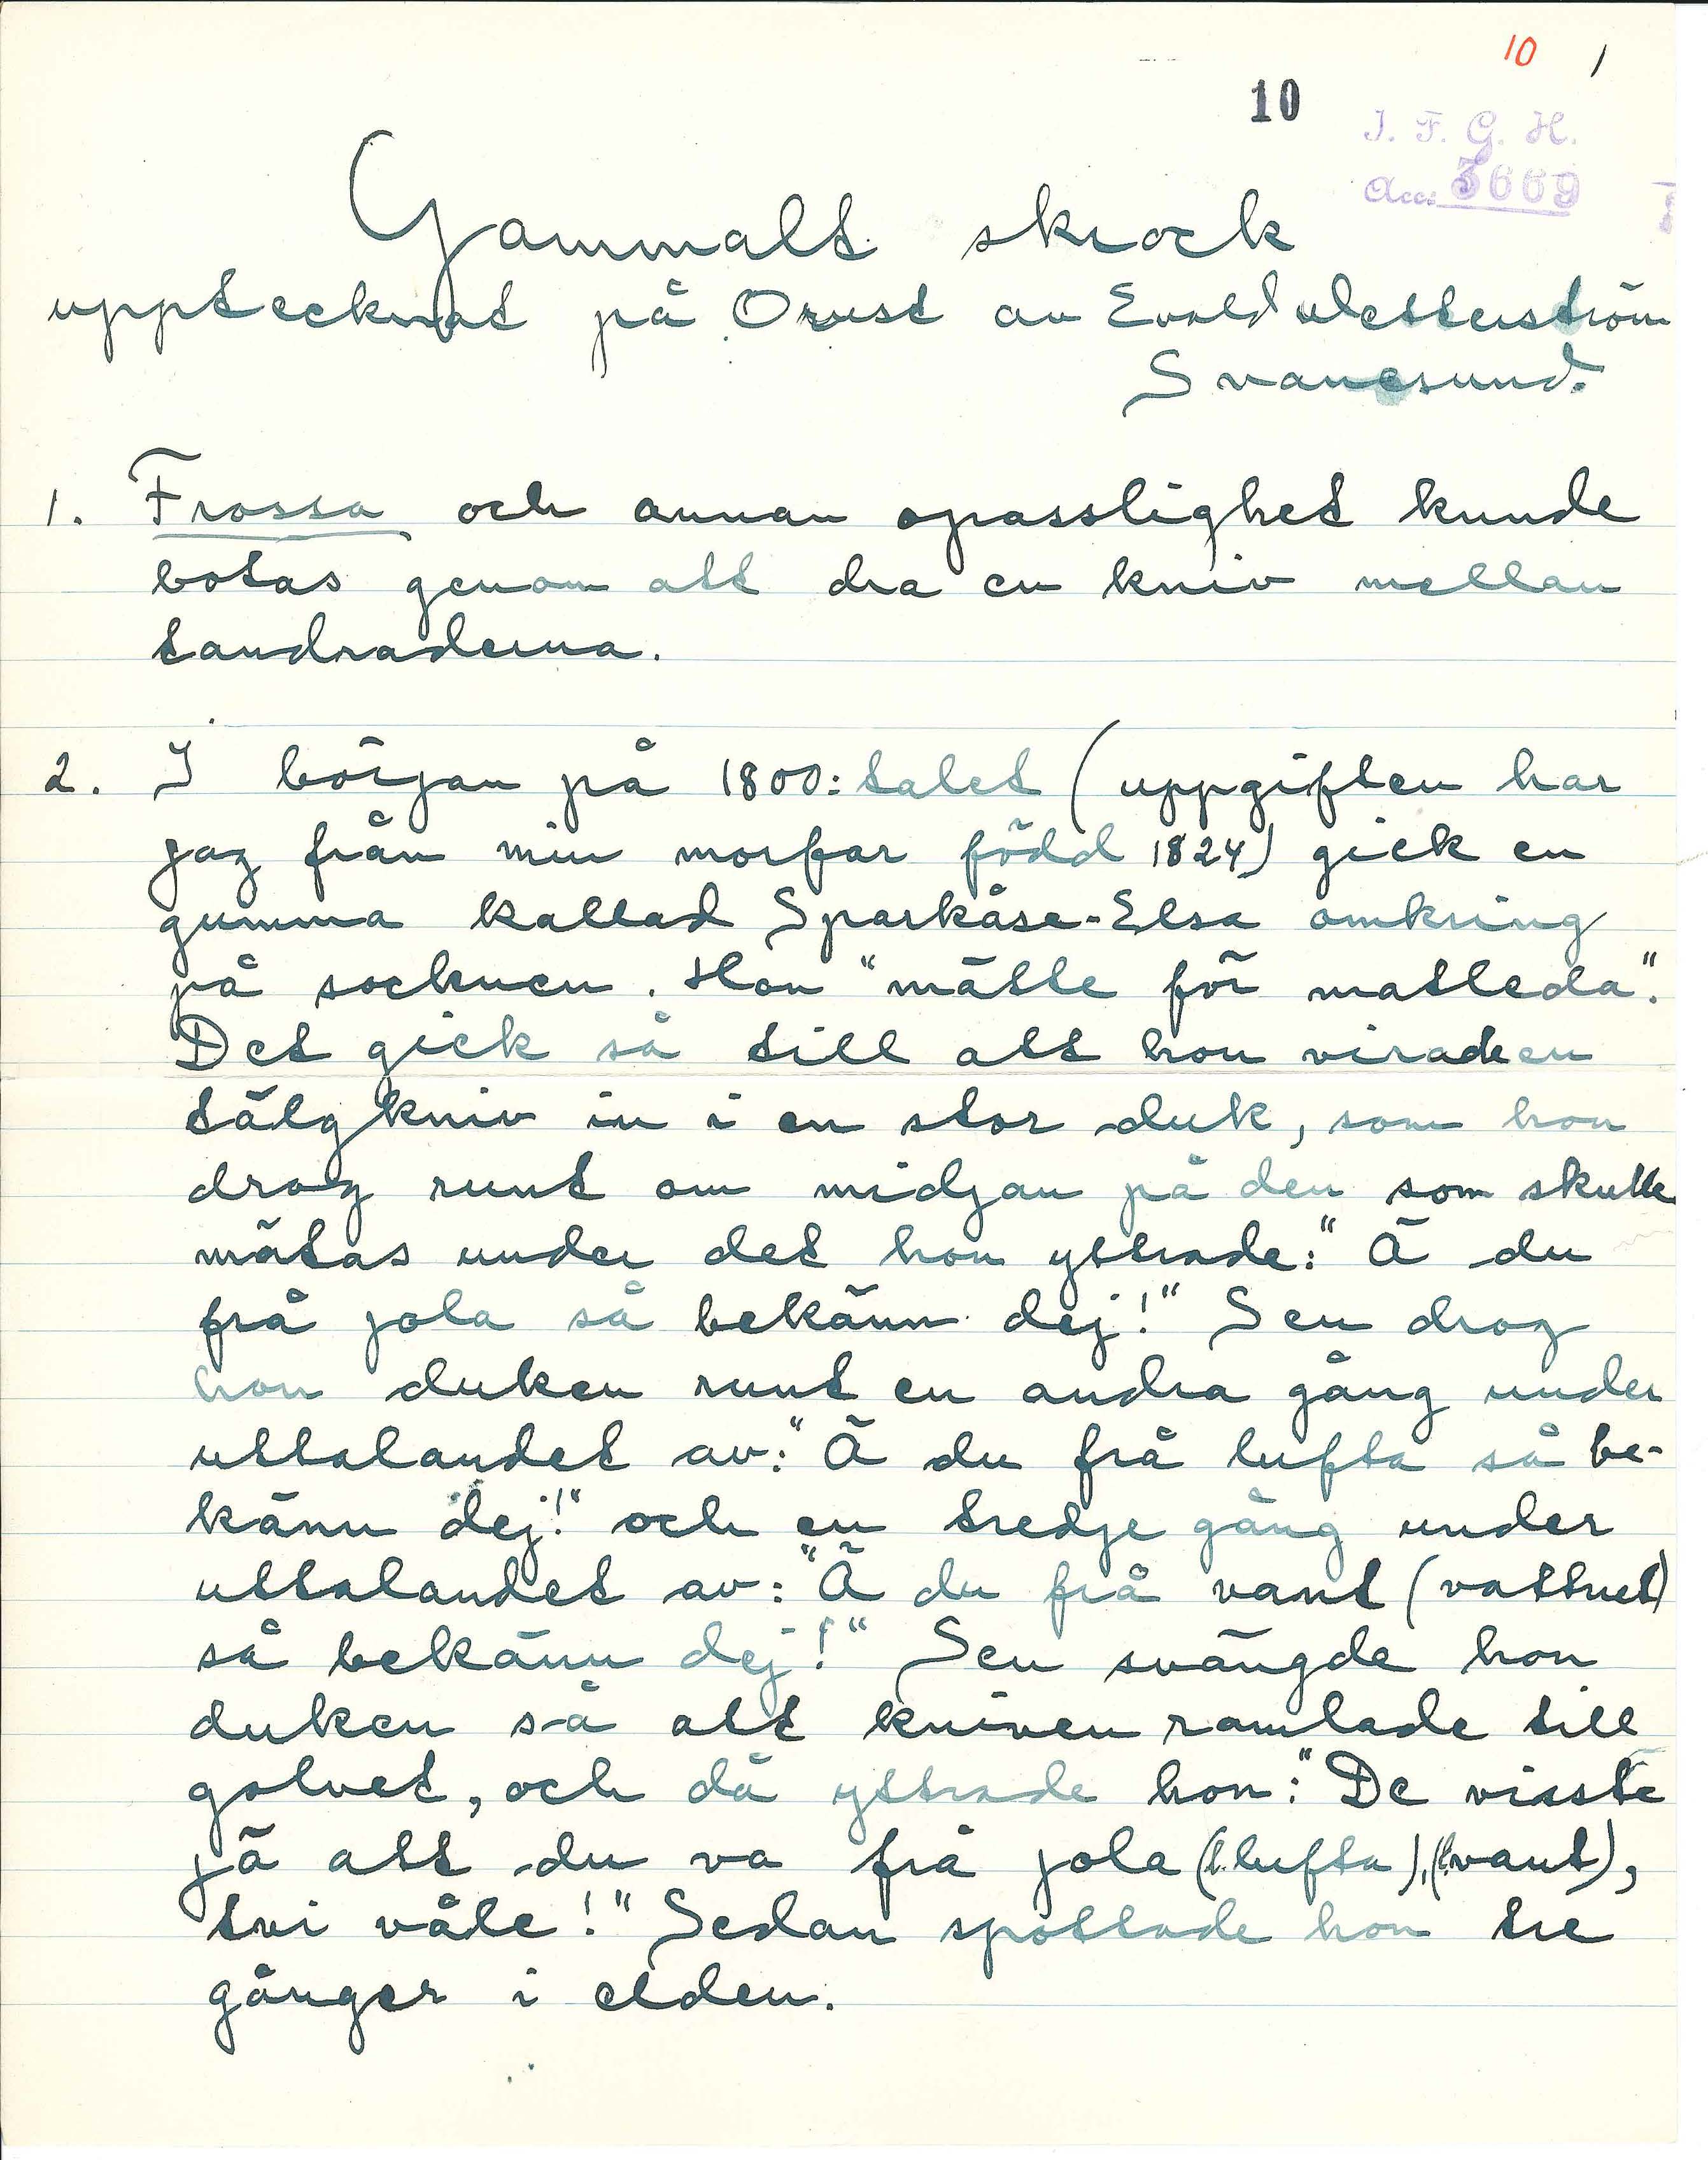 10 1
10
I. F. G. H.
Acc: 3669
Gammalt skrock
upptecknat på Orust av Evald Wetterström
Svanesund.
1. Frossa och annan opasslighet kunde
botas genom att dra en kniv mellan
tandraderna.
2. I början på 1800:talet (uppgiften har
jag från min morfar född 1824) gick en
gumma kallad Sparkåse-Elsa omkring
på socknen. Hon "mätte för matleda".
Det gick så till att hon virade en
tälgkniv in i en stor duk, som hon
drog runt om midjan på den som skulle
mätas under det hon yttrade: "Ä du
frå jola så bekänn dej!" Sen drog
hon duken runt en andra gång under
uttalandet av: "Ä du frå lufta så be-
känn dej!" och en tredje gång under
uttalandet av: "Ä du frå vant (vattnet)
så bekänn dej!" Sen svängde hon
duken så att kniven ramlade till
golvet, och då yttrade hon: "De visste
jä att du va frå jola (l. lufta), (l. vant),
tvi våle!" Sedan spottade hon tre
gånger i elden.